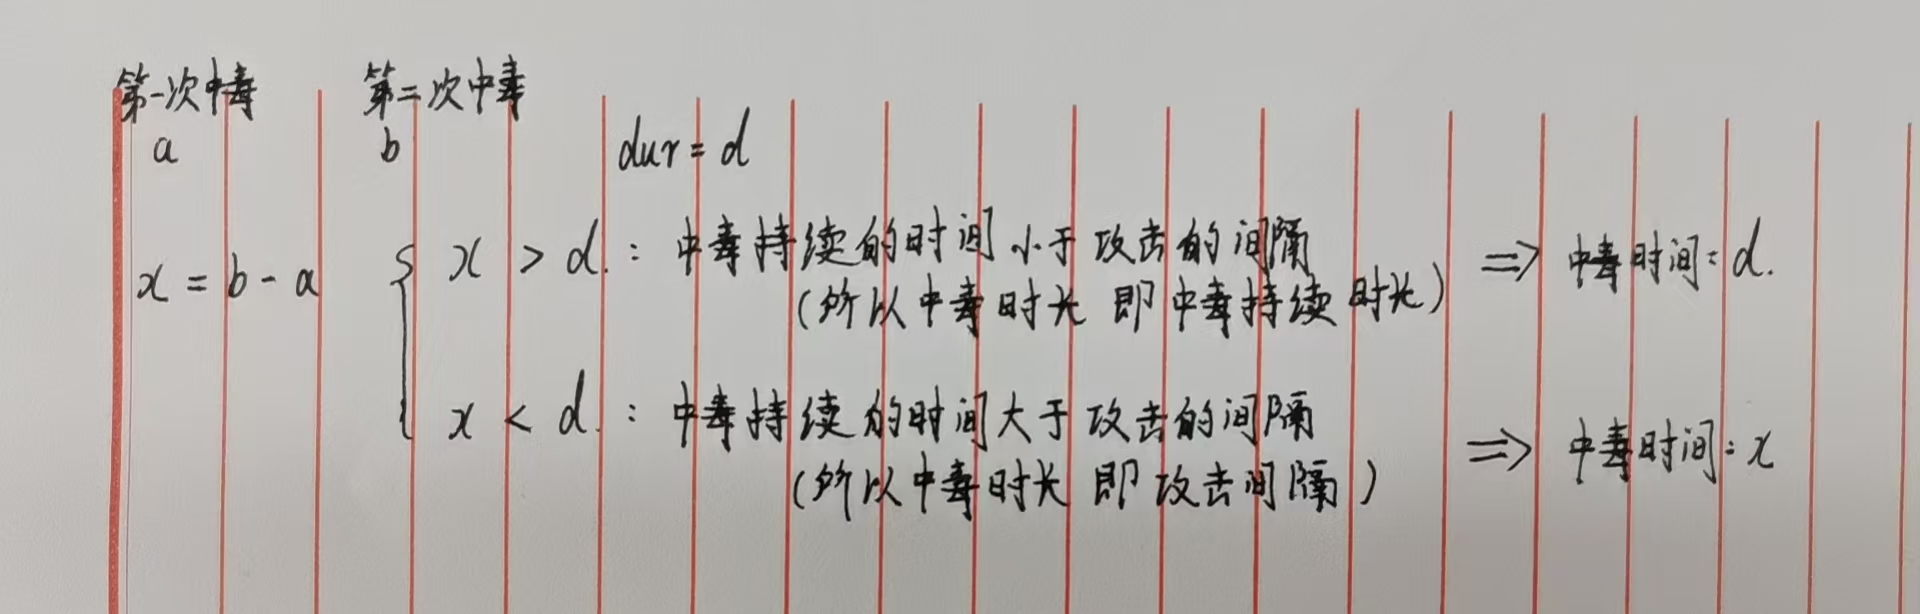 第一次中毒 第二次中毒
a b dur = d
x = b - a
x > d. : 中毒持续的时间小于攻击的间隔 ⇒ 中毒时间: d.
(所以中毒时长 即 中毒持续时长)
x < d. : 中毒持续的时间大于攻击的间隔 ⇒ 中毒时间: x
(所以中毒时长 即 攻击间隔)